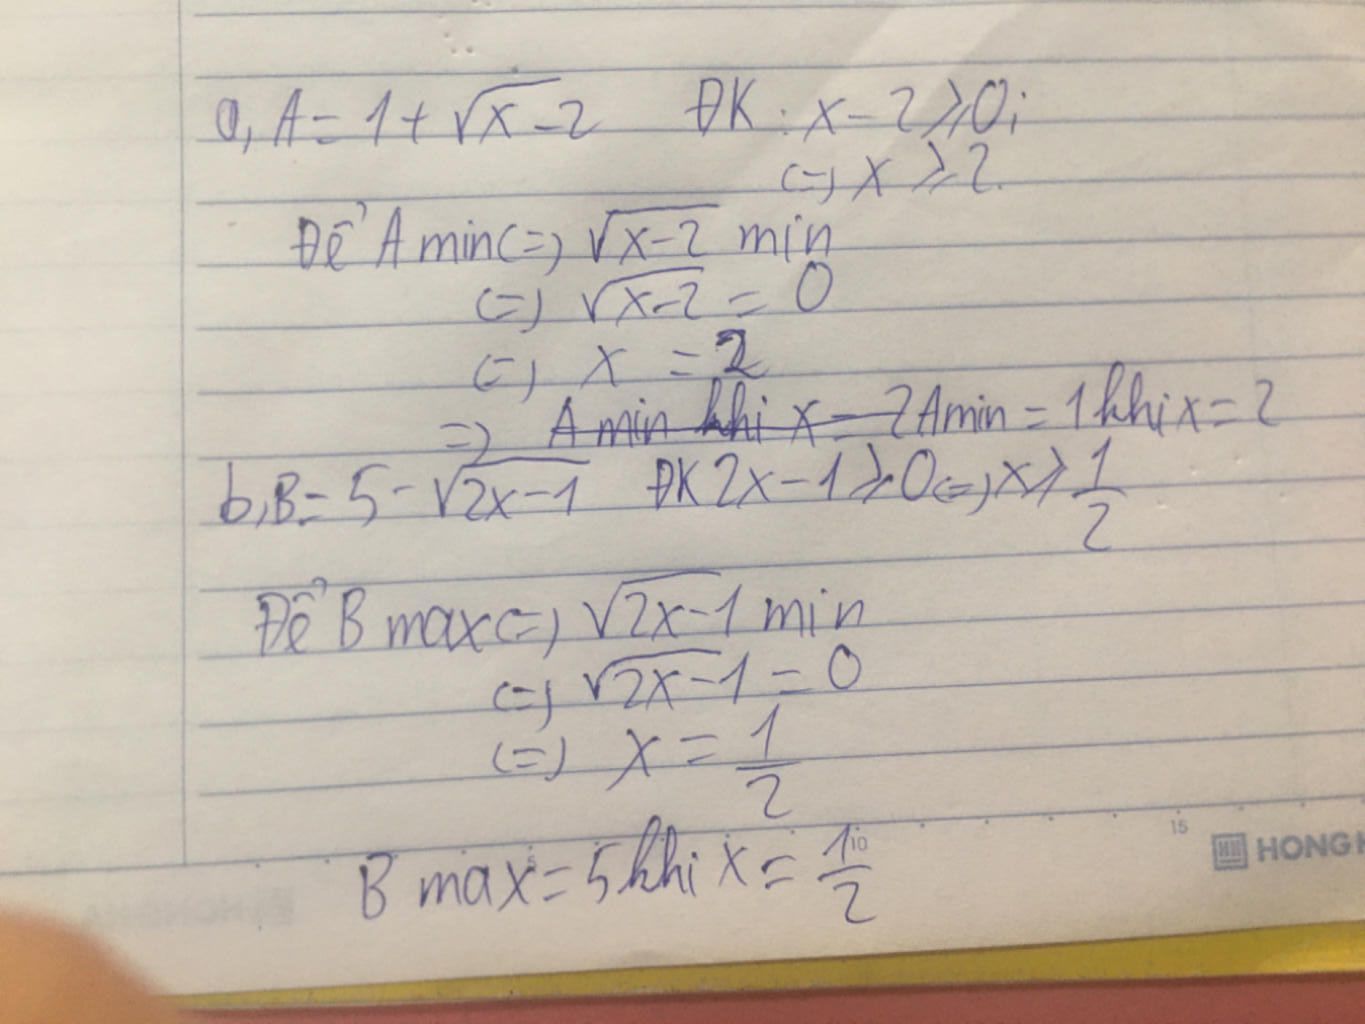 a, A = 1 + √x-2 ĐK: x-2 ≥ 0;
(=) x ≥ 2.
Để A min (=) √x-2 min
(=) √x-2 = 0
(=) x = 2
=) A min khi x = 2 A min = 1 khi x = 2
b, B = 5 - √2x-1 ĐK 2x-1 ≥ 0 (=) x ≥ 1/2
Để B max (=) √2x-1 min
(=) √2x-1 = 0
(=) x = 1/2
15
10
HONG H
B max = 5 khi x = 1/2